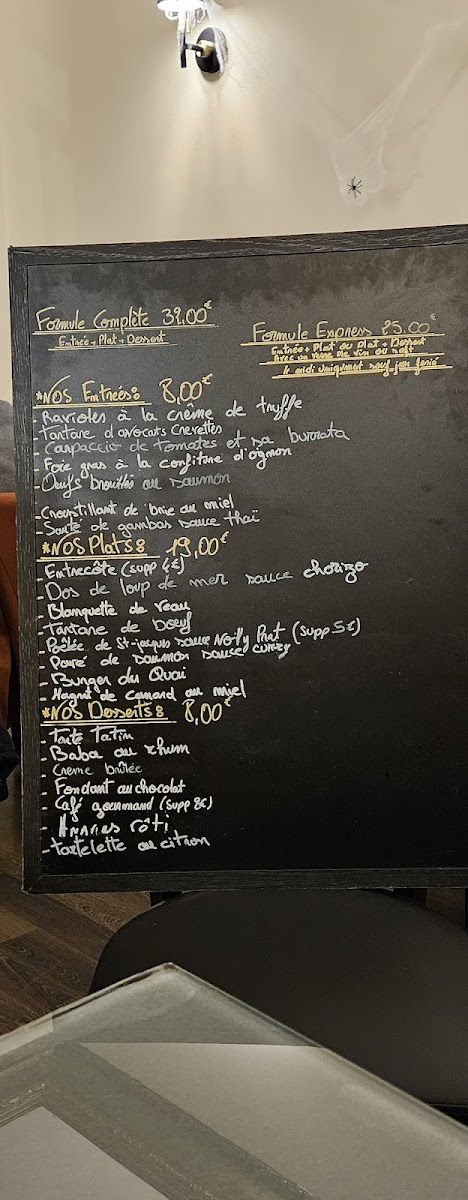 Formule Complète 32.00€
Entrée + Plat + Dessert
Formule Express 25.00€
Entrée + Plat ou Plat + Dessert
avec un verre de vin ou soft
le midi uniquement sauf jour férié
*NOS Entrées: 8,00€
- Ravioles à la crème de truffe
- Tartare d'avocats crevettes
- Carpaccio de tomates et sa burrata
- Foie gras à la confiture d'oignon
- Oeufs brouillés au saumon
- Croustillant de brie au miel
- Sauté de gambas sauce thaï
*NOS Plats: 19,00€
- Entrecôte (supp 4€)
- Dos de loup de mer sauce chorizo
- Blanquette de veau
- Tartare de boeuf
- Poêlée de St-jacques sauce Noilly Prat (supp 5€)
- Pavé de saumon sauce curry
- Burger du Quai
- Magret de canard au miel
*NOS Desserts: 8,00€
- Tarte Tatin
- Baba au rhum
- Crème brûlée
- Fondant au chocolat
- Café gourmand (supp 2€)
- Ananas rôti
- Tartelette au citron